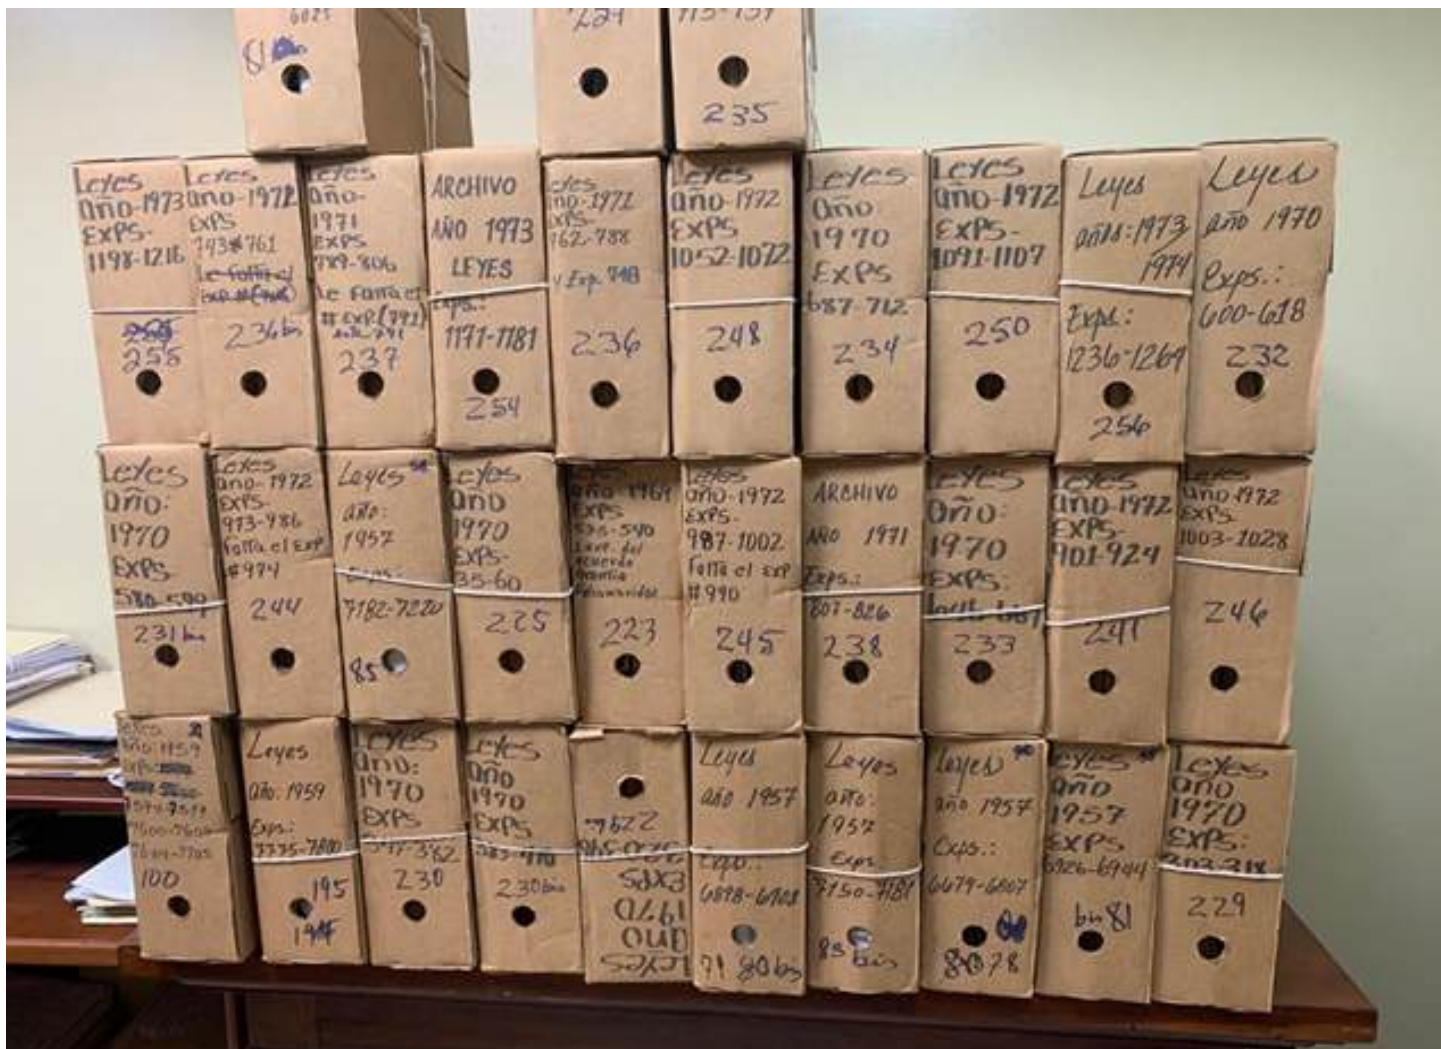 81
235
Leyes
año-1973
EXPS-
1198-1216
255
Leyes
año-1972
EXPS
743 761
Le falta el
236 bis
Leyes
año-
1971
EXPS
789-806
Le falta el
# EXP. (791)
237
ARCHIVO
AÑO 1973
LEYES
Exps.:
1171-1181
254
Leyes
EXPS-
762-788
y Exp. 748
236
Leyes
año-1972
EXPS-
1052-1072
248
Leyes
año
1970
EXPS
687-712
234
Leyes
año-1972
EXPS-
1091-1107
250
Leyes
años:1973
1974
Exps.:
1236-1264
256
Leyes
año 1970
Exps.:
600-618
232
Leyes
año:
1970
EXPS-
580-599
231 bis
Leyes
año-1972
EXPS-
973-986
Falta el Exp
#974
244
Leyes
año:
1957
Exps:
7182-7220
85
Leyes
año
1970
EXPS-
35-60
225
EXPS
535-540
223
Leyes
año-1972
EXPS-
987-1002
Falta el EXP
#990
245
ARCHIVO
AÑO 1971
Exps.:
807-826
238
Leyes
año:
1970
EXPS:
233
Leyes
año-1972
EXPS-
901-924
241
Leyes
año-1972
EXPS-
1003-1028
246
Leyes
año:1959
100
Leyes
año: 1959
Exps:
7775-7800
195
Leyes
año:
1970
EXPS
230
Leyes
año
1970
EXPS
230 bis
Leyes
año
1970
EXPS
Leyes
año 1957
Exps.:
6898-6908
71 80 bis
Leyes
año:
1957
Exps
7150-7181
85 bis
Leyes
año 1957
Exps.:
6679-6807
78
Leyes
año
1957
EXPS
6926-6944
bis 81
Leyes
año
1970
EXPS:
303-318
229